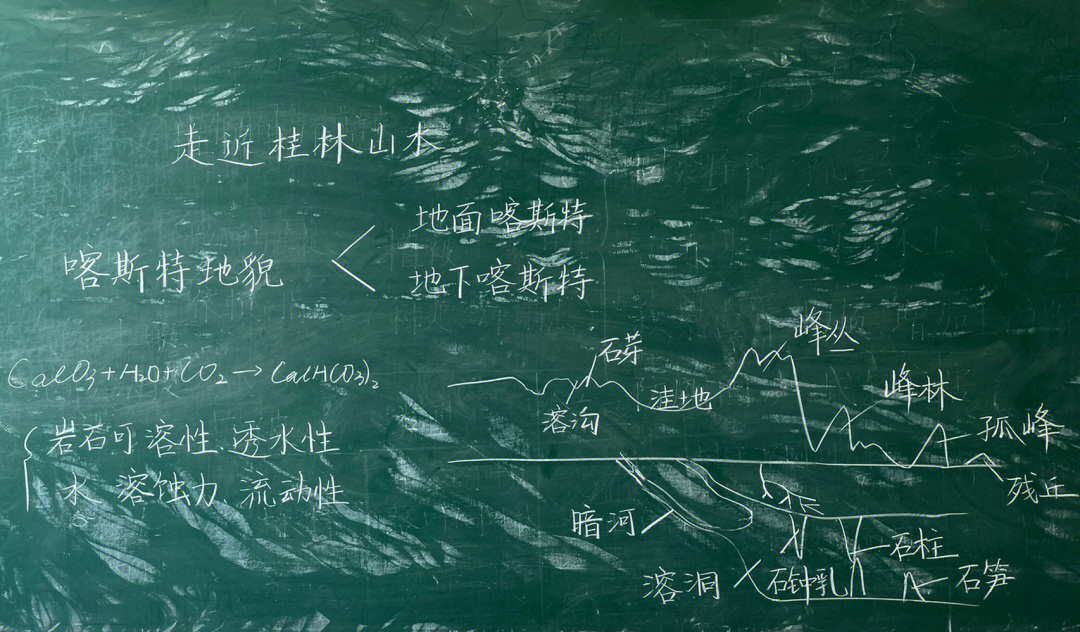 走近桂林山水
地面喀斯特
喀斯特地貌
地下喀斯特
CaCO3+H2O+CO2→Ca(HCO3)2
岩石可溶性、透水性
水 溶蚀力、流动性
峰丛
石芽
洼地
峰林
溶沟
孤峰
残丘
暗河
石柱
溶洞
石钟乳
石笋